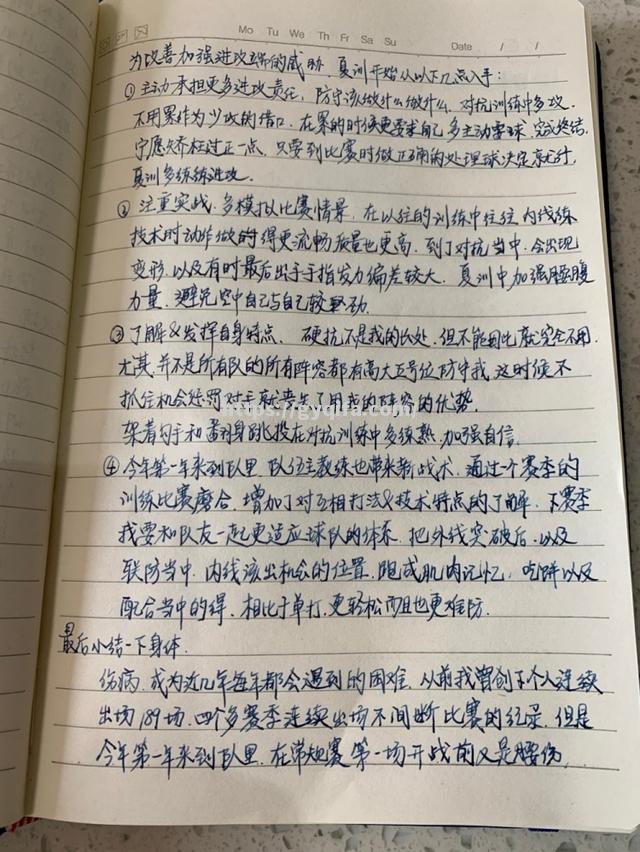 Mo Tu We Th Fr Sa Su
Date / /
为改善加强进攻端的威胁,夏训开始从以下几点入手:
①主动承担更多进攻责任,防守该做什么做什么,对抗训练中多攻,
不用累作为少攻的借口,在累的时候更要求自己多主动要球,完成终结,
宁愿矫枉过正一点,只要到比赛时做正确的处理球决定就行,
夏训多练练进攻.
②注重实战,多模拟比赛情景,在以往的训练中往往内线练
技术时动作做的得更流畅质量也更高,到了对抗当中,会出现
变形,以及有时最后出手手指发力偏差较大,夏训中加强腰腹
力量,避免空中自己与自己较劲.
③了解&发挥自身特点,硬抗不是我的长处,但不能因此就完全不用.
尤其,并不是所有队的所有阵容都有高大五号位防守我,这时候不
抓住机会惩罚对手就丧失了用我的阵容的优势.
https://gyqufa.com/
架着勾手和翻身跳投在对抗训练中多练熟,加强自信.
④今年第一年来到队里,队伍主教练也带来新战术,通过一个赛季的
训练比赛磨合,增加了对互相打法&技术特点的了解,下赛季
我要和队友一起更适应球队的体系,把外线突破后,以及
联防当中,内线该出机会的位置,跑成肌肉记忆,吃饼以及
配合当中的得,相比于单打,更轻松而且也更难防.
最后小结一下身体.
伤病,成为近几年每年都会遇到的困难,从前我曾创下个人连续
出场189场,四个多赛季连续出场不间断比赛的纪录,但是
今年第一年来到队里,在常规赛第一场开战前又是腰伤,